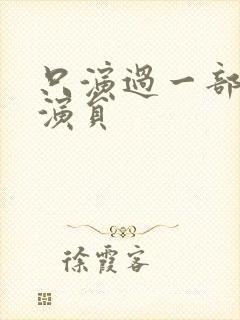 只演过一部
演员
徐霞客